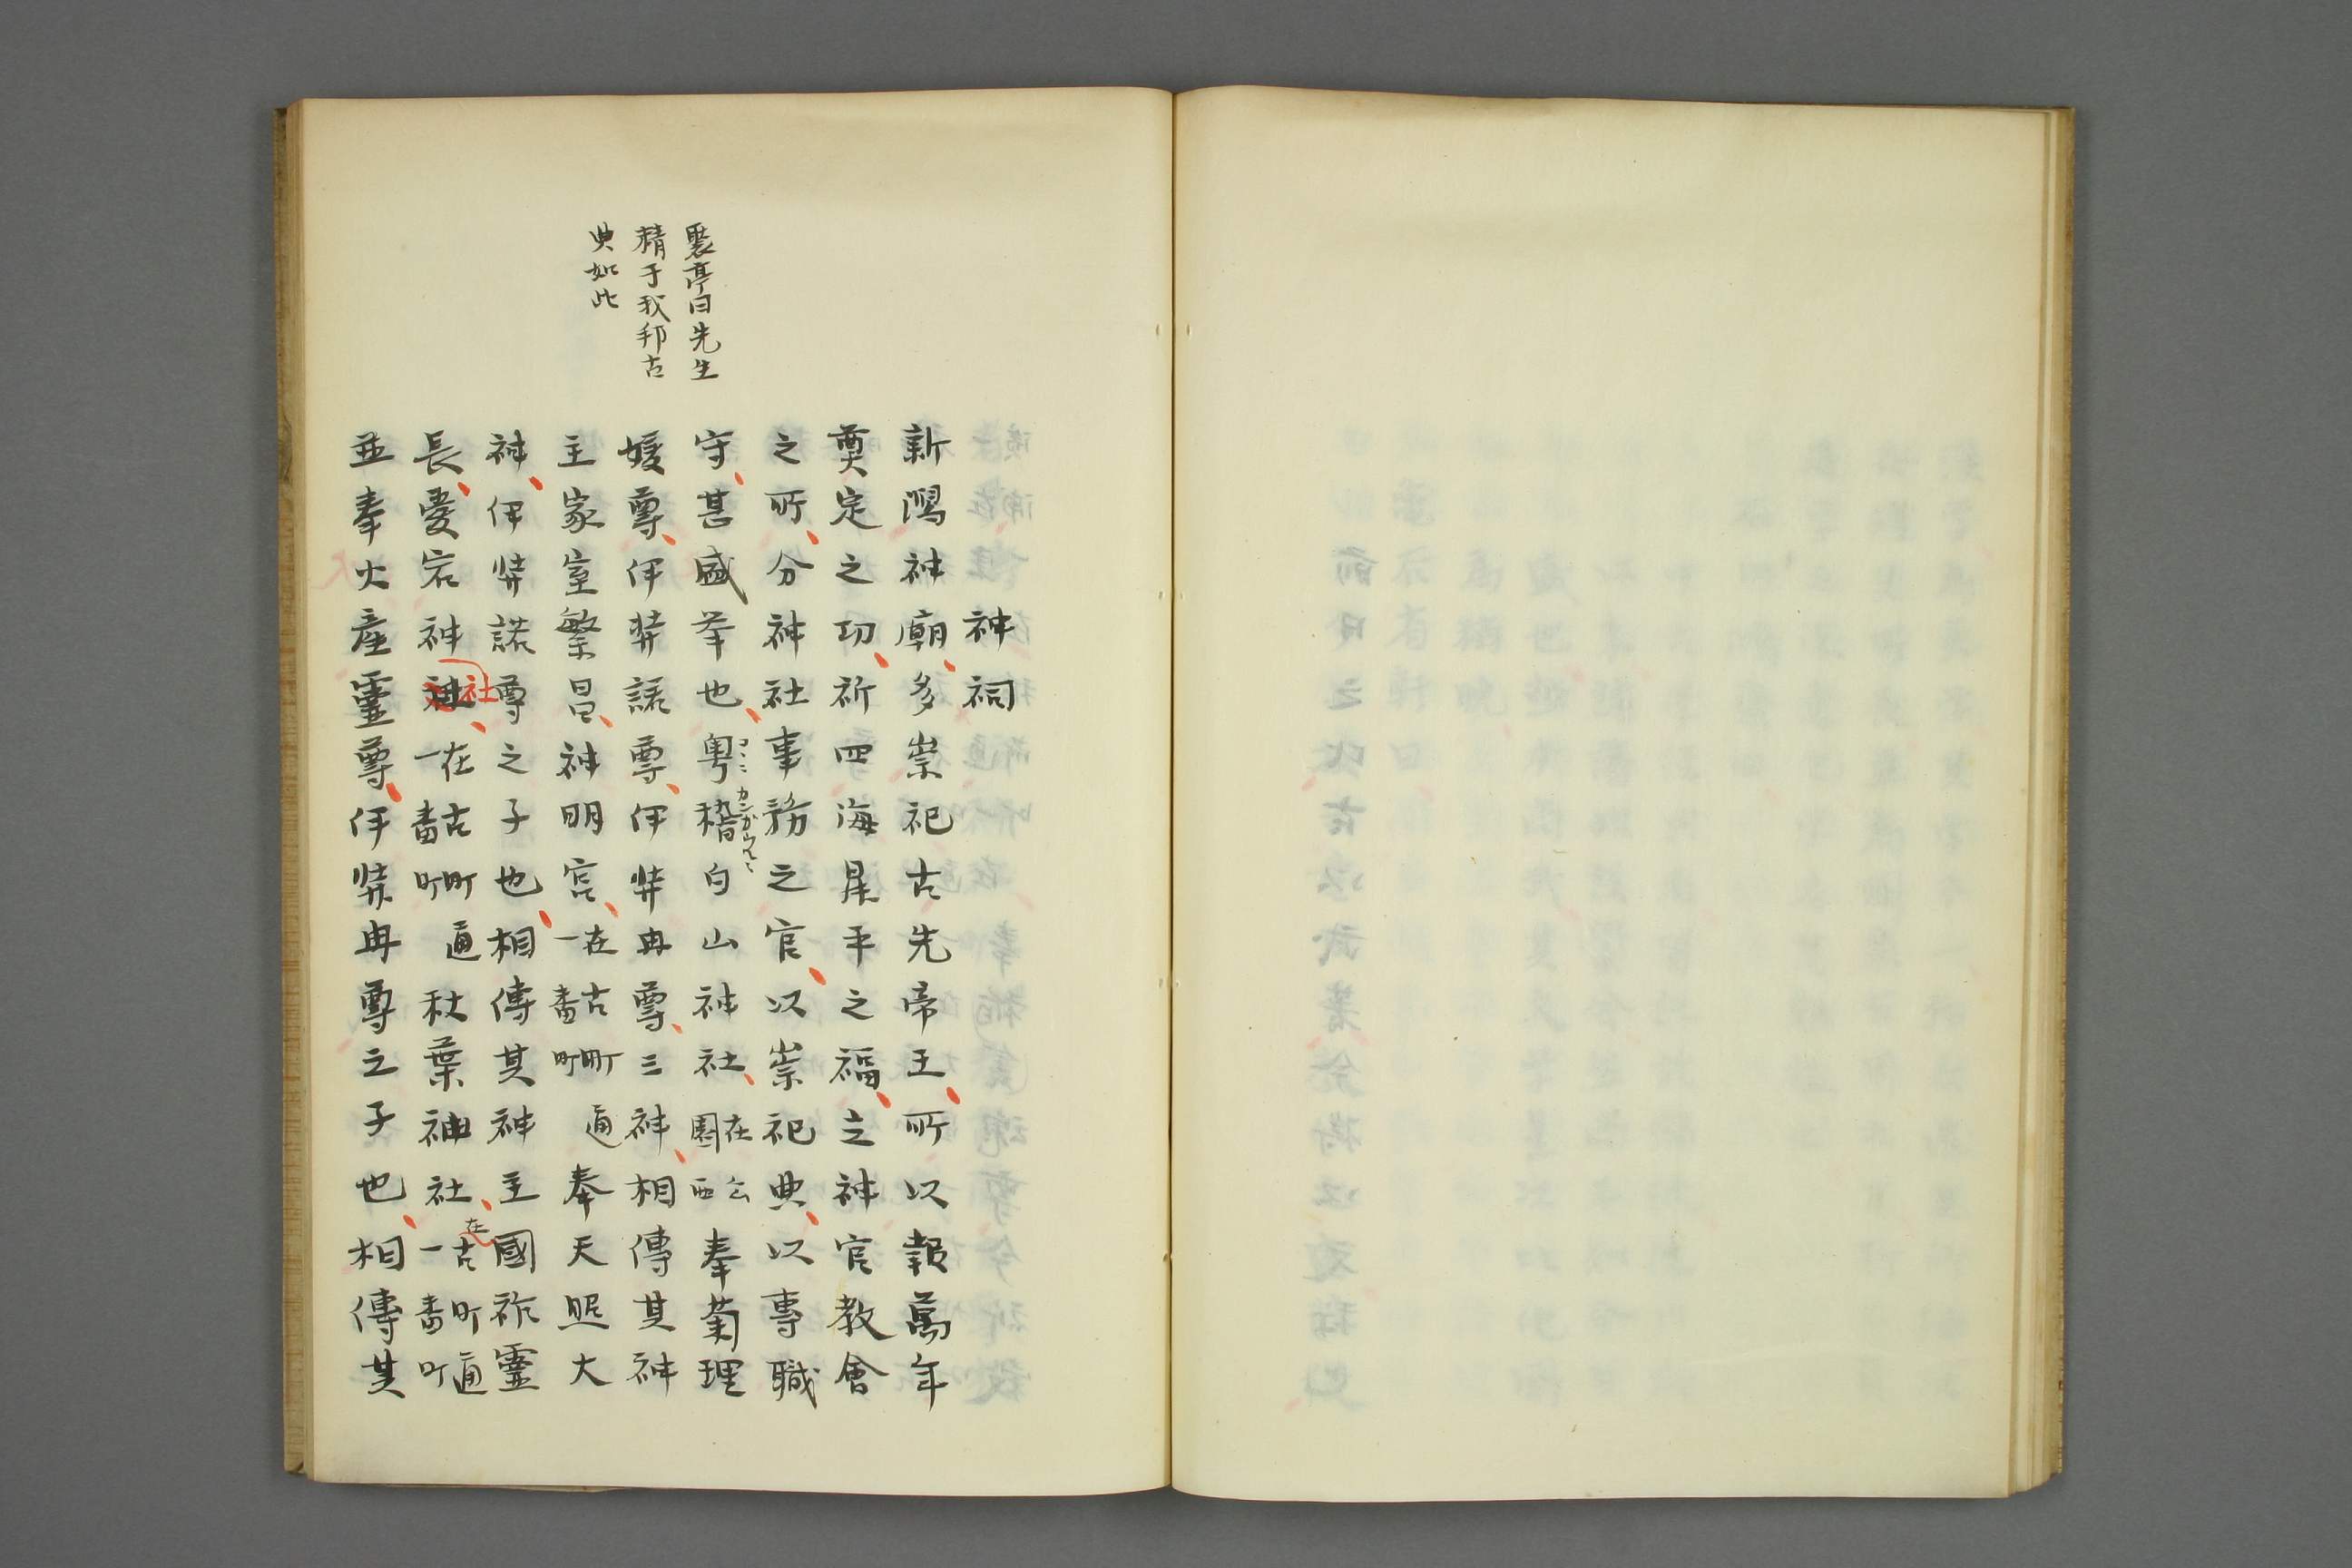 褧亭曰先生
精于我邦古
典如此
神祠
新潟神廟多崇祀古先帝王所以報萬年
奠定之功祈四海昇平之福之神官教會
之所分神社事務之官以崇祀典以專職
守甚盛挙也粤稽白山神社在公園西奉菊理
コヽニ
カンガウルニ
媛尊伊弉諾尊伊弉冉尊三神相傳其神
主家室繁昌神明宮在古町一番町通奉天照大
神伊弉諾尊之子也相傳其神主國祚靈
長愛宕神社在古町一番町通秋葉神社在古町一番町通
並奉火産霊尊伊弉冉尊之子也相傳其